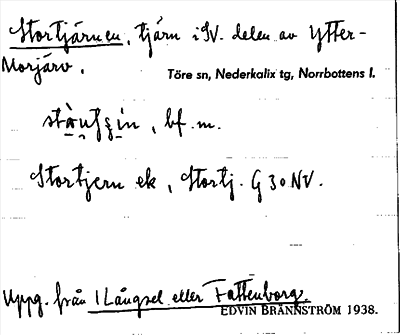 Stortjärnen, tjärn i SV. delen av Ytter-
Morjärv.
Töre sn, Nederkalix tg, Norrbottens l.
bf. m.
Stortjern ek, Stortj. G 30 NV.
Uppg. från I Långsel eller Fattenborg.
EDVIN BRÄNNSTRÖM 1938.